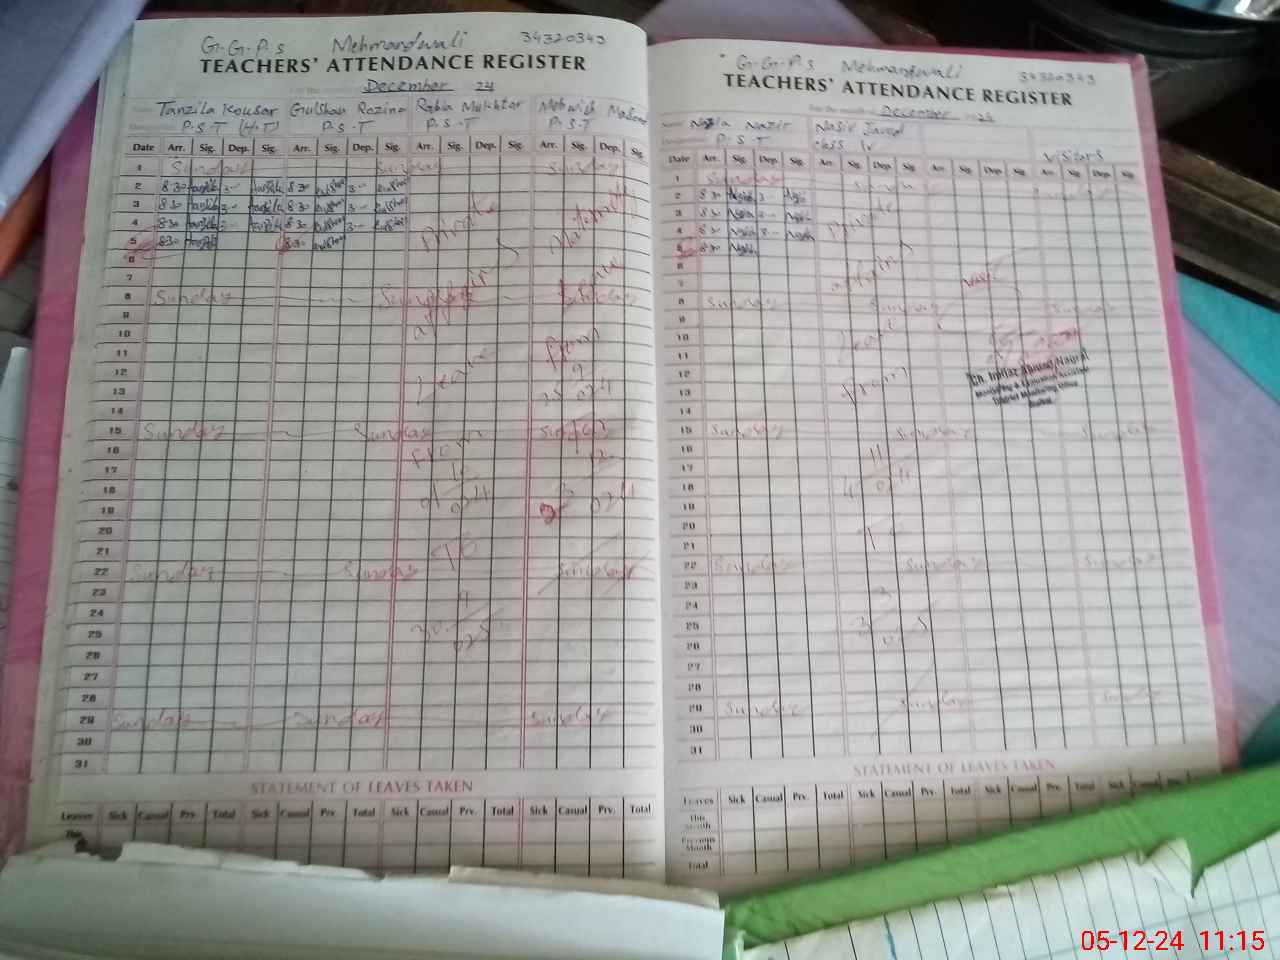 G.G.P.S Mehmandwali 34320343
TEACHERS' ATTENDANCE REGISTER
For the month of December 24
Tanzila Kousar Gulshan Rozina Rabia Mukhtar Mehwish
P.S.T (H.T) P.S.T P.S.T P.S.T
Date Arr. Sig. Dep. Sig. Arr. Sig. Dep. Sig. Arr. Sig. Dep. Sig. Arr. Sig. Dep. Sig.
1 Sunday Sunday Sunday
2 8 30 3 -- 8 30 3 --
3 8 30 3 -- 8 30 3 --
4 8 30 3 -- 8 30 3 --
5 8 30 8 30
6
7
8 Sunday Sunday Sunday
9
10
11
12
13
14
15 Sunday Sunday Sunday
16
17
18
19
20
21
22 Sunday Sunday Sunday
23
24
25
26
27
28
29 Sunday Sunday Sunday
30
31
Private
affairs
Leave
From
01/10/024
To
Maternity
Leave
From
STATEMENT OF LEAVES TAKEN
Leaves Sick Casual Prv. Total Sick Casual Prv. Total Sick Casual Prv. Total Sick Casual Prv. Total
This
G.G.P.S Mehmandwali 34320343
TEACHERS' ATTENDANCE REGISTER
For the month of December 24
Nazia Nazir Nasir Javed
P.S.T Class IV Visitors
Date Arr. Sig. Dep. Sig. Arr. Sig. Dep. Sig. Arr. Sig. Dep. Sig. Arr. Sig. Dep. Sig.
1 Sunday
2 8 30 3 --
3 8 30 3 --
4 8 30 3 --
5 8 30
6
7
8 Sunday Sunday Sunday
9
10
11
12
13
14
15 Sunday Sunday Sunday
16
17
18
19
20
21
22 Sunday Sunday Sunday
23
24
25
26
27
28
29 Sunday Sunday Sunday
30
31
Private
affairs
Leave
From
To
Visit
Monitoring & Evaluation Assistant
District Monitoring Office
STATEMENT OF LEAVES TAKEN
Leaves Sick Casual Prv. Total Sick Casual Prv. Total Sick Casual Prv. Total Sick Casual Prv.
This Month
Previous Month
Total
05-12-24 11:15